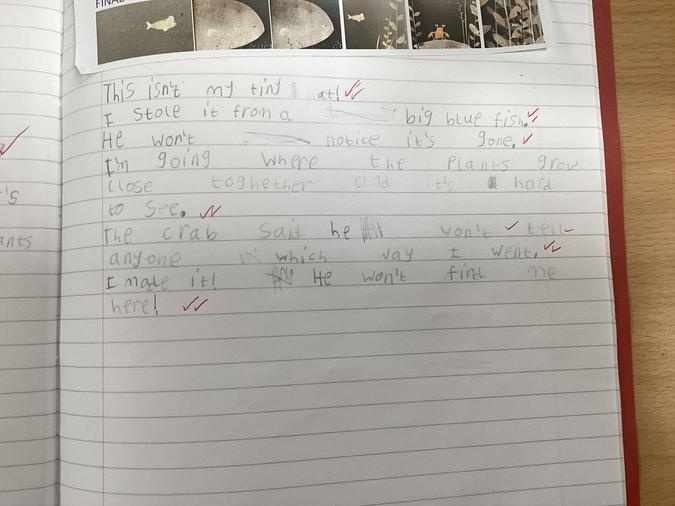 FINAL
This isn't my tiny hat!
I stole it from a big blue fish.
He won't notice it's gone.
I'm going where the plants grow
close toghether and it's hard
to see.
the crab said he won't tell
anyone which way I went.
I made it! He won't find me
here!
's
ants